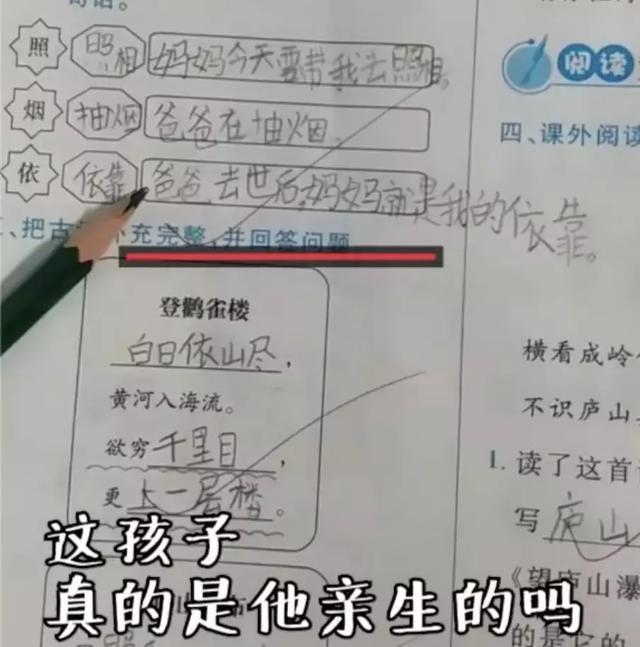 句话。
照 照相 妈妈今天要带我去照相。
烟 抽烟 爸爸在抽烟。
依 依靠 爸爸去世后,妈妈就是我的依靠。
把古 补充完整,并回答问题
登鹳雀楼
白日依山尽,
黄河入海流。
欲穷千里目,
更上一层楼。
阅读
四、课外阅读
横看成岭
不识庐山
1. 读了这首
写庐山
《望庐山瀑
的是它的
这孩子
真的是他亲生的吗